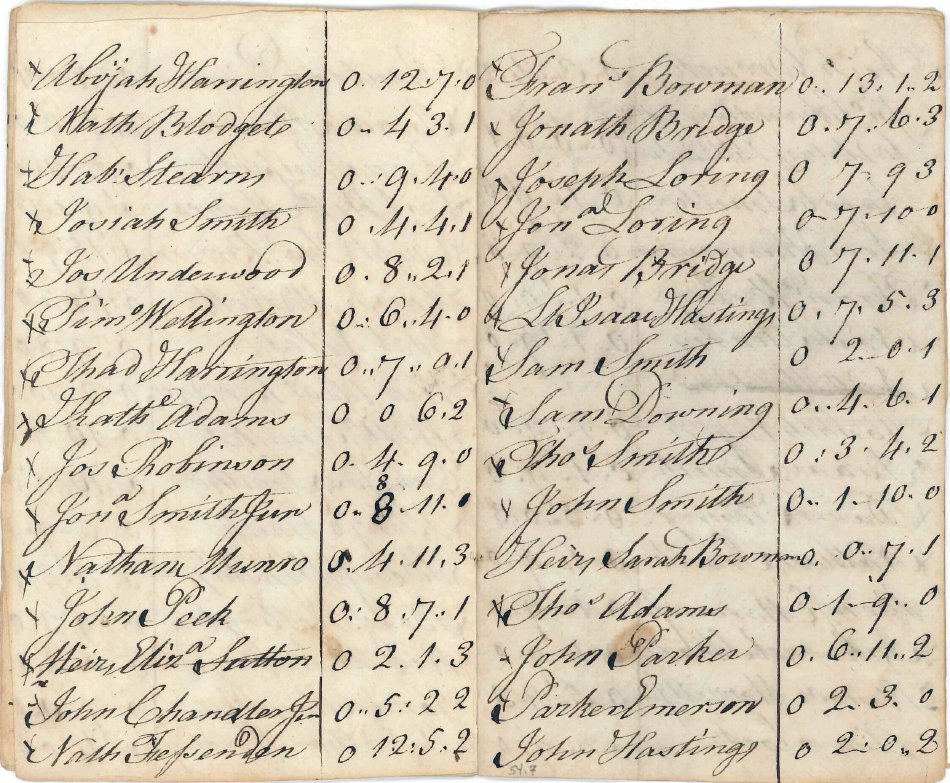 x Abijah Harrington 0. 12.7.0
x Nath Blodgett 0.. 4 3.1
x Hab. Stearns 0..9.4.0
x Josiah Smith 0.4.4.1
x Jos Underwood 0.8..2.1
x Timo Wellington 0..6..4.0
x Thad Harrington 0..7..9.1
x Kathe Adams 0 0 6.2
x Jos Robinson 0.4.9.0
x Jona Smith Jun 0..8.11.0
8
x Nathan Munro 0.4.11.3
x John Peek 0:8.7.1
x Heirs Eliza Sutton 0 2.1.3
x John Chandler Jun 0..5.2 2
x Nath Fessenden 0 12:5.2
x Frans Bowman 0..13.1..2
x Jonath Bridge 0.7..6.3
x Joseph Loring 0 7.93
x Jonad Loring 0.7.100
x Jonas Bridge 0 7.11.1
x Lt Isaac Hastings 0.7.5.3
x Sam Smith 0 2.0.1
x Sam Downing 0..4.6.1
x Thos Smith 0:3.4.2
x John Smith 0..1.10.0
Heirs Sarah Bowman 0. 0..7.1
x Thos Adams 0.1.9..0
x John Parker 0.6..11..2
x Parker Emerson 0 2.3.0
x John Hastings 0 2:0..2
54.7